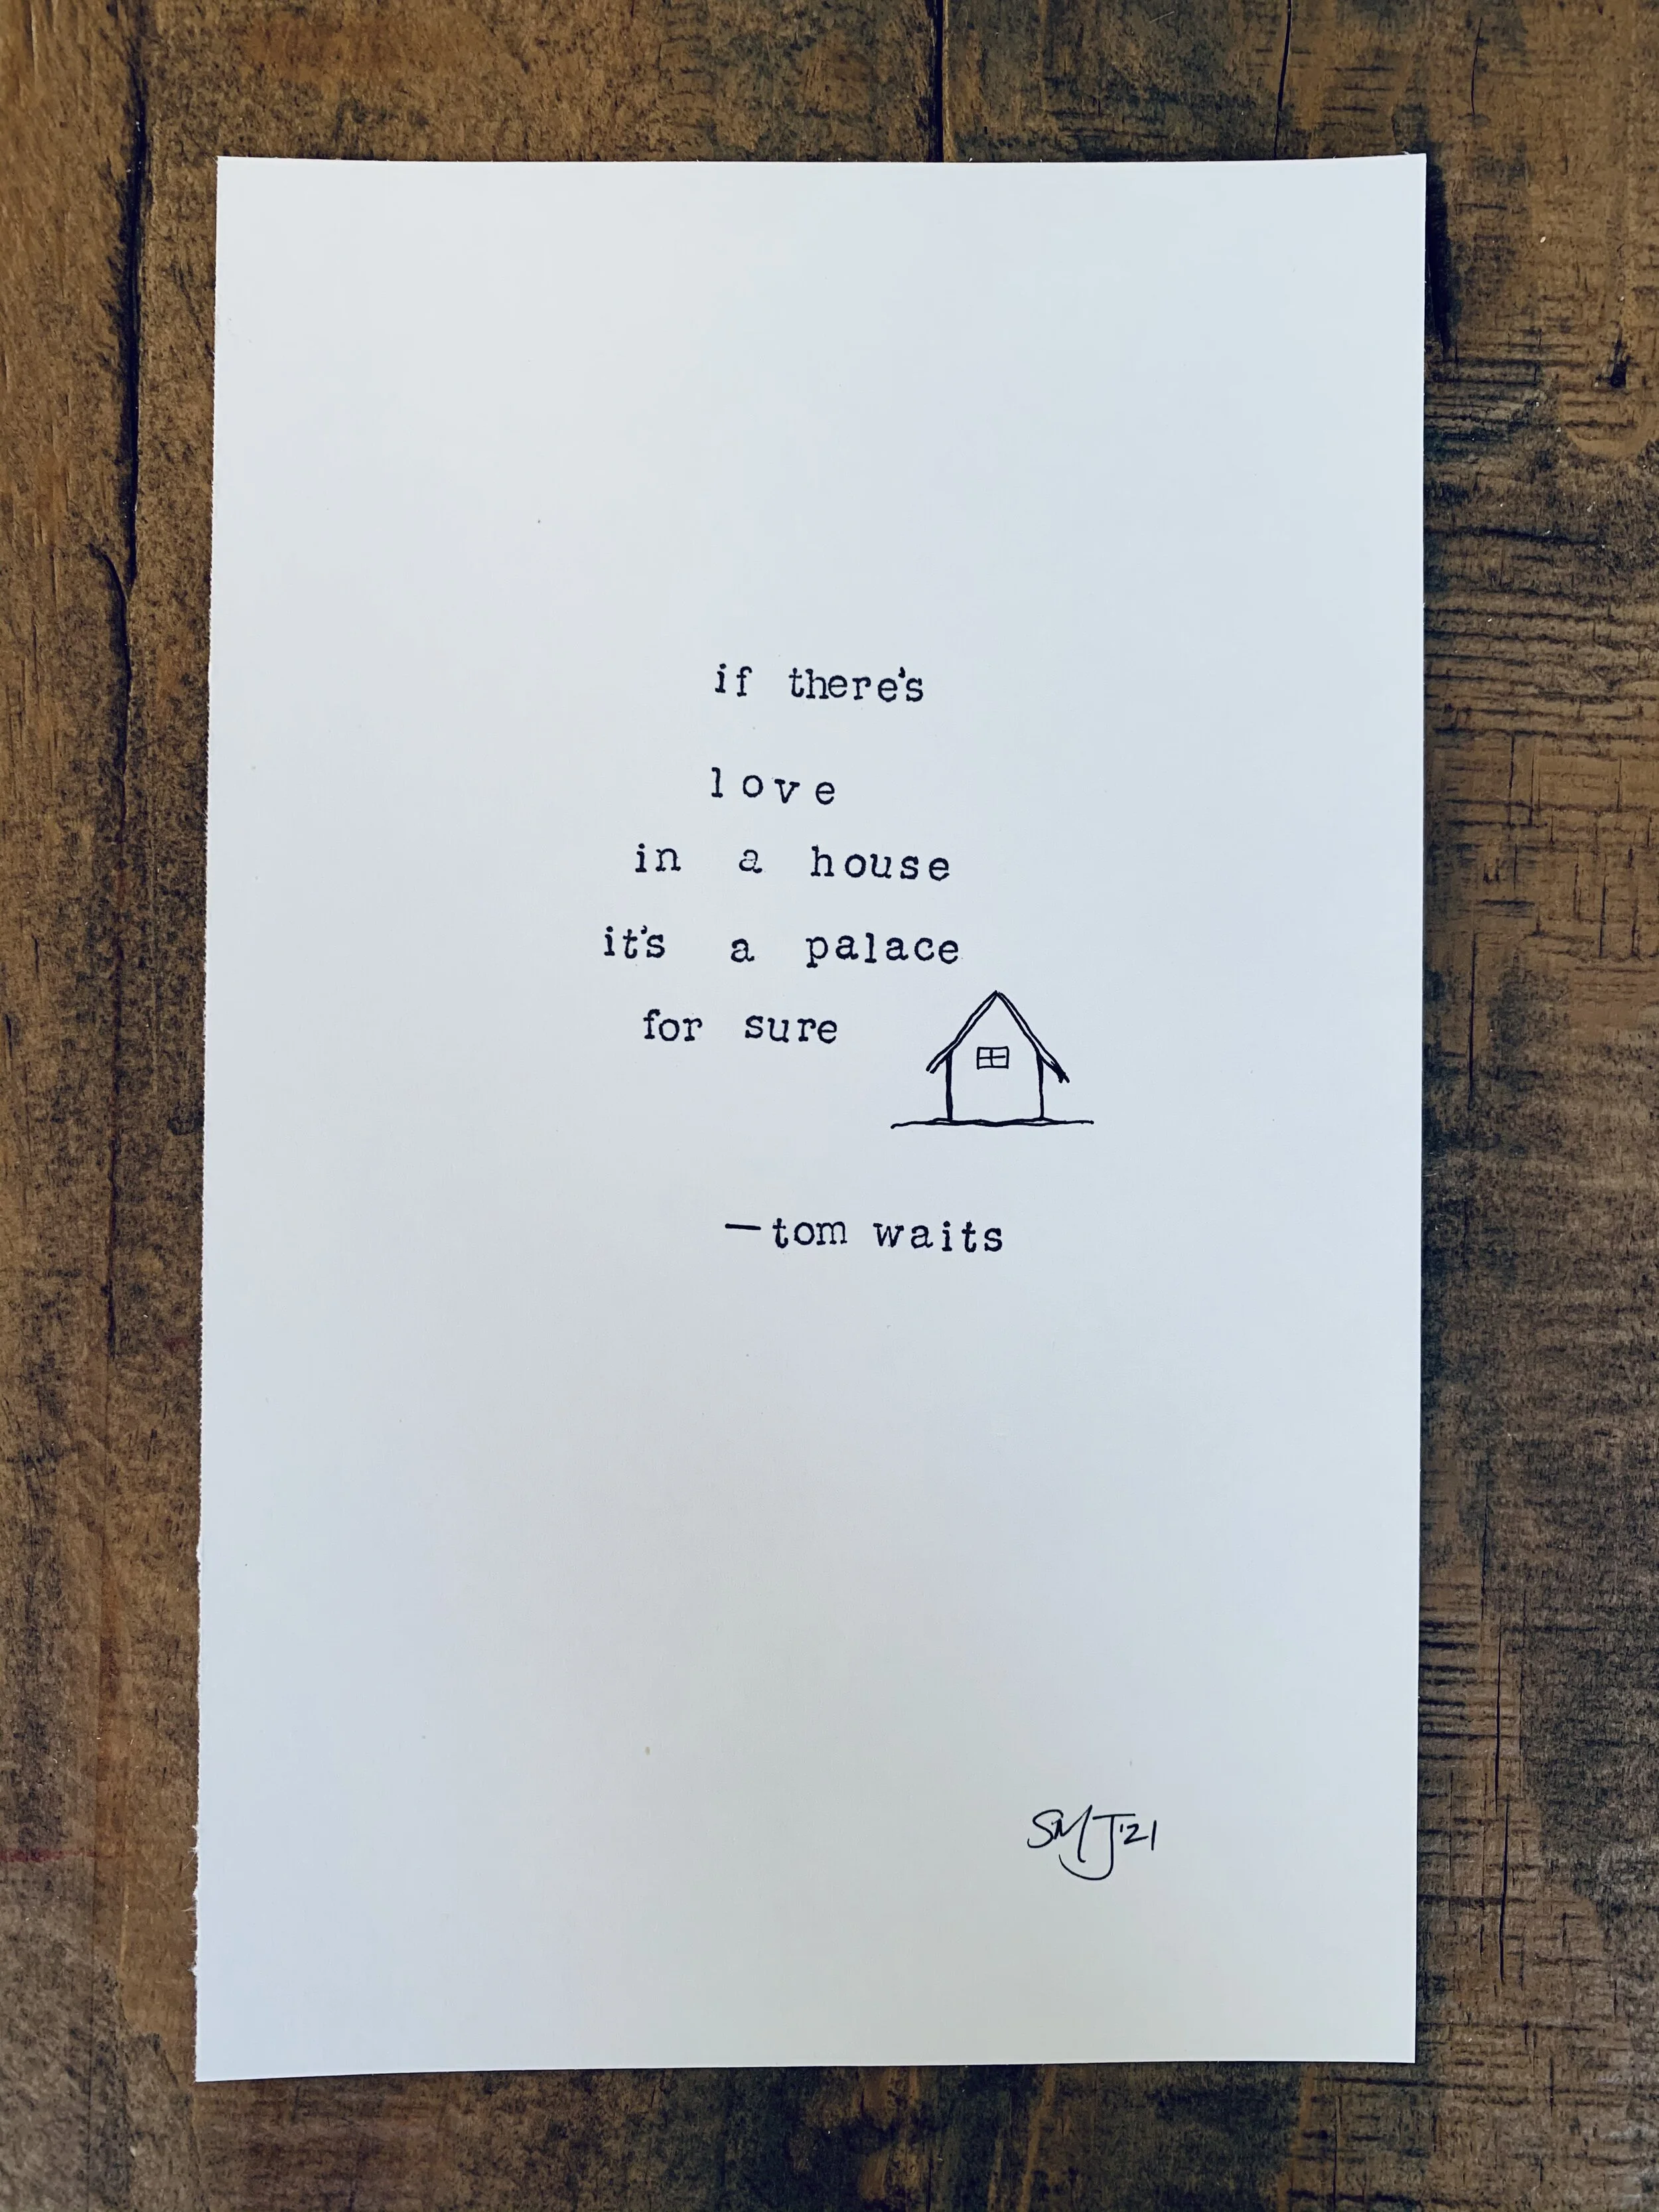 if there's
love
in a house
it's a palace
for sure
—tom waits
SMJ'21